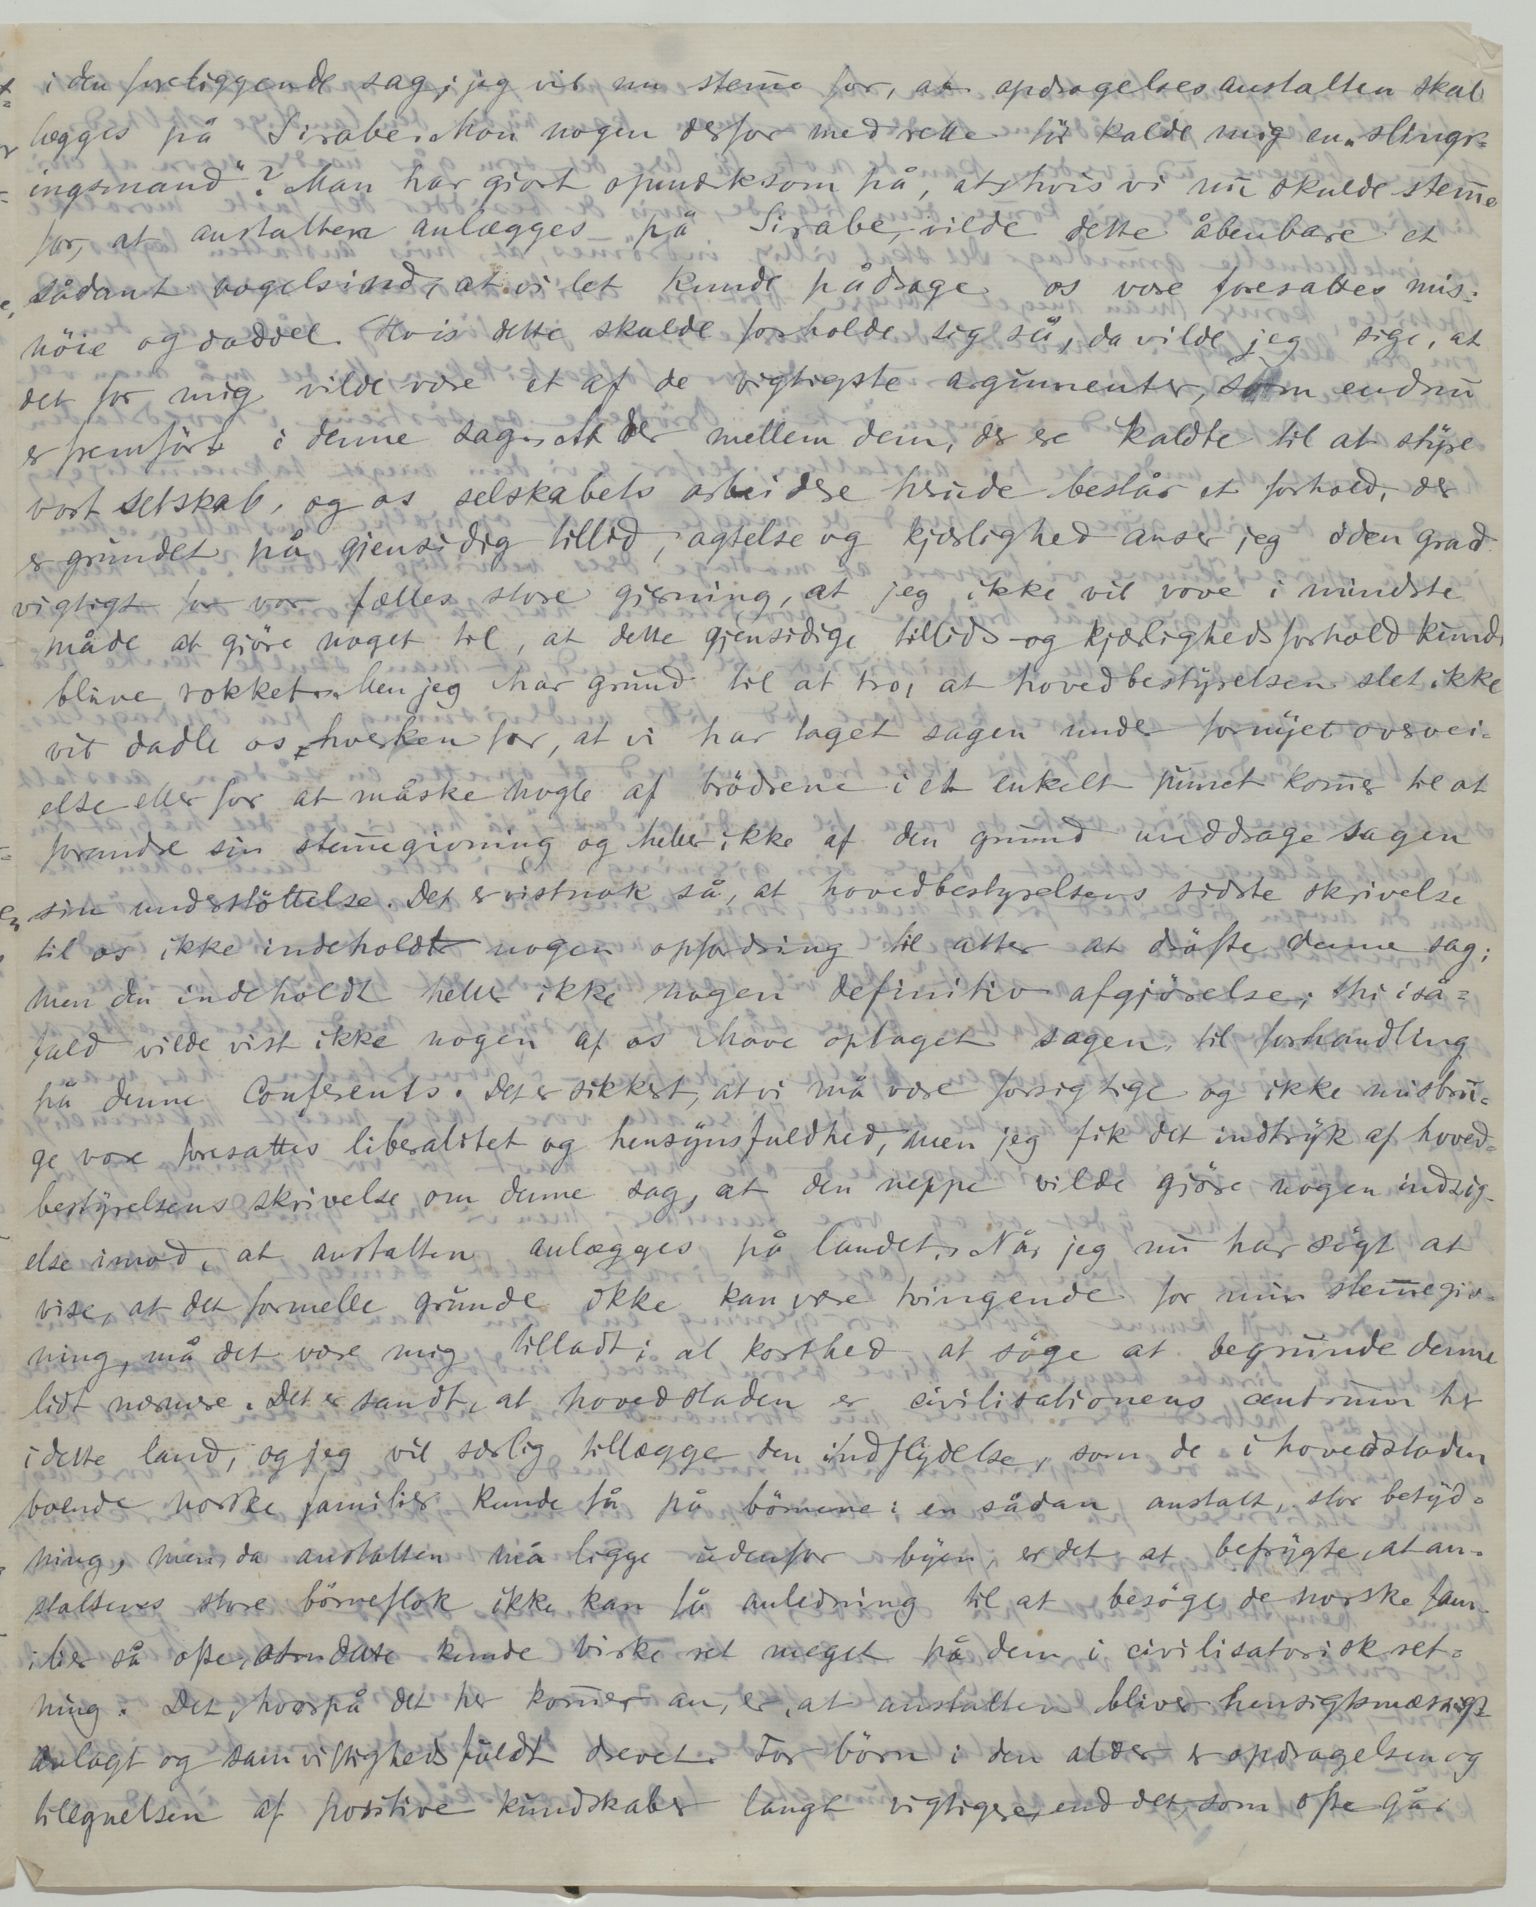 i den foreliggende sag; jeg vil nu stem̄e for, at opdragelsesanstalten skal
lægges på Sirabe. Mon nogen derfor med rette tör kalde mig en „slingr=
ingsmand"? Man har gjort opmærksom på, at hvis vi nu skulde stem̄e
for, at anstalten anlægges på Sirabe, vilde dette åbenbare et
sådant vægelsind, at vi let kunde pådrage os vore foresattes mis=
nöie og daddel. Hvis dette skulde forholde sig så, da vilde jeg sige, at
det for mig vilde være et af de vigtigste argumenter, som endnu
er fremfört i denne sag. At der mellem dem, der ere kaldte til at styre
vort selskab, og os selskabets arbeidere herude består et forhold, der
er grundet på gjensidig tillid, agtelse og kjærlighed anser jeg i den grad
vigtigt for vor fælles store gjerning, at jeg ikke vil vove i mindste
måde at gjöre noget til, at dette gjensidige tillids- og kjærlighedsforhold kunde
blive rokket. Men jeg har grund til at tro, at hovedbestyrelsen slet ikke
vil dadle os, hverken for, at vi har taget sagen under fornyet overvei=
else eller for at måske nogle af brödrene i et enkelt punct kom̄er til at
forandre sin stem̄egivning og heller ikke af den grund unddrage sagen
sin understöttelse. Det er vistnok så, at hovedbestyrelsens sidste skrivelse
til os ikke indeholdt nogen opfordring til atter at dröfte denne sag;
men den indeholdt heller ikke nogen definitiv afgjörelse; thi iså=
fald vilde vist ikke nogen af os have optaget sagen til forhandling
på denne Conferents. Det er sikkert, at vi må være forsigtige og ikke misbru=
ge vore foresattes liberalitet og hensynsfuldhed, men jeg fik det indtryk af hoved=
bestyrelsens skrivelse om denne sag, at den neppe vilde gjöre nogen indsig=
else imod, at anstalten anlægges på landet. Når jeg nu har sögt at
vise, at det formelle grunde ikke kan være tvingende for min stem̄egiv=
ning, må det være mig tilladt i al korthed at söge at begrunde denne
lidt nærmere. Det er sandt, at hovedstaden er civilisationens centrum her
i dette land, og jeg vil særlig tillægge den indflydelse, som de i hovedstaden
boende norske familier kunde få på börnene i en sådan anstalt, stor betyd=
ning, men da anstalten må ligge udenfor byen, er det at befrygte, at an=
staltens store börneflok ikke kan få anledning til at besöge de norske fam=
ilier så ofte, at dette kunde virke ret meget på dem i civilisatorisk ret=
ning. Det, hvorpå det her kom̄er an, er, at anstalten bliver hensigtsmæssigt
anlagt og samvittighedsfuldt drevet. For börn i den alder er opdragelsen og
tilegnelsen af positive kundskaber langt vigtigere, end det, som ofte går